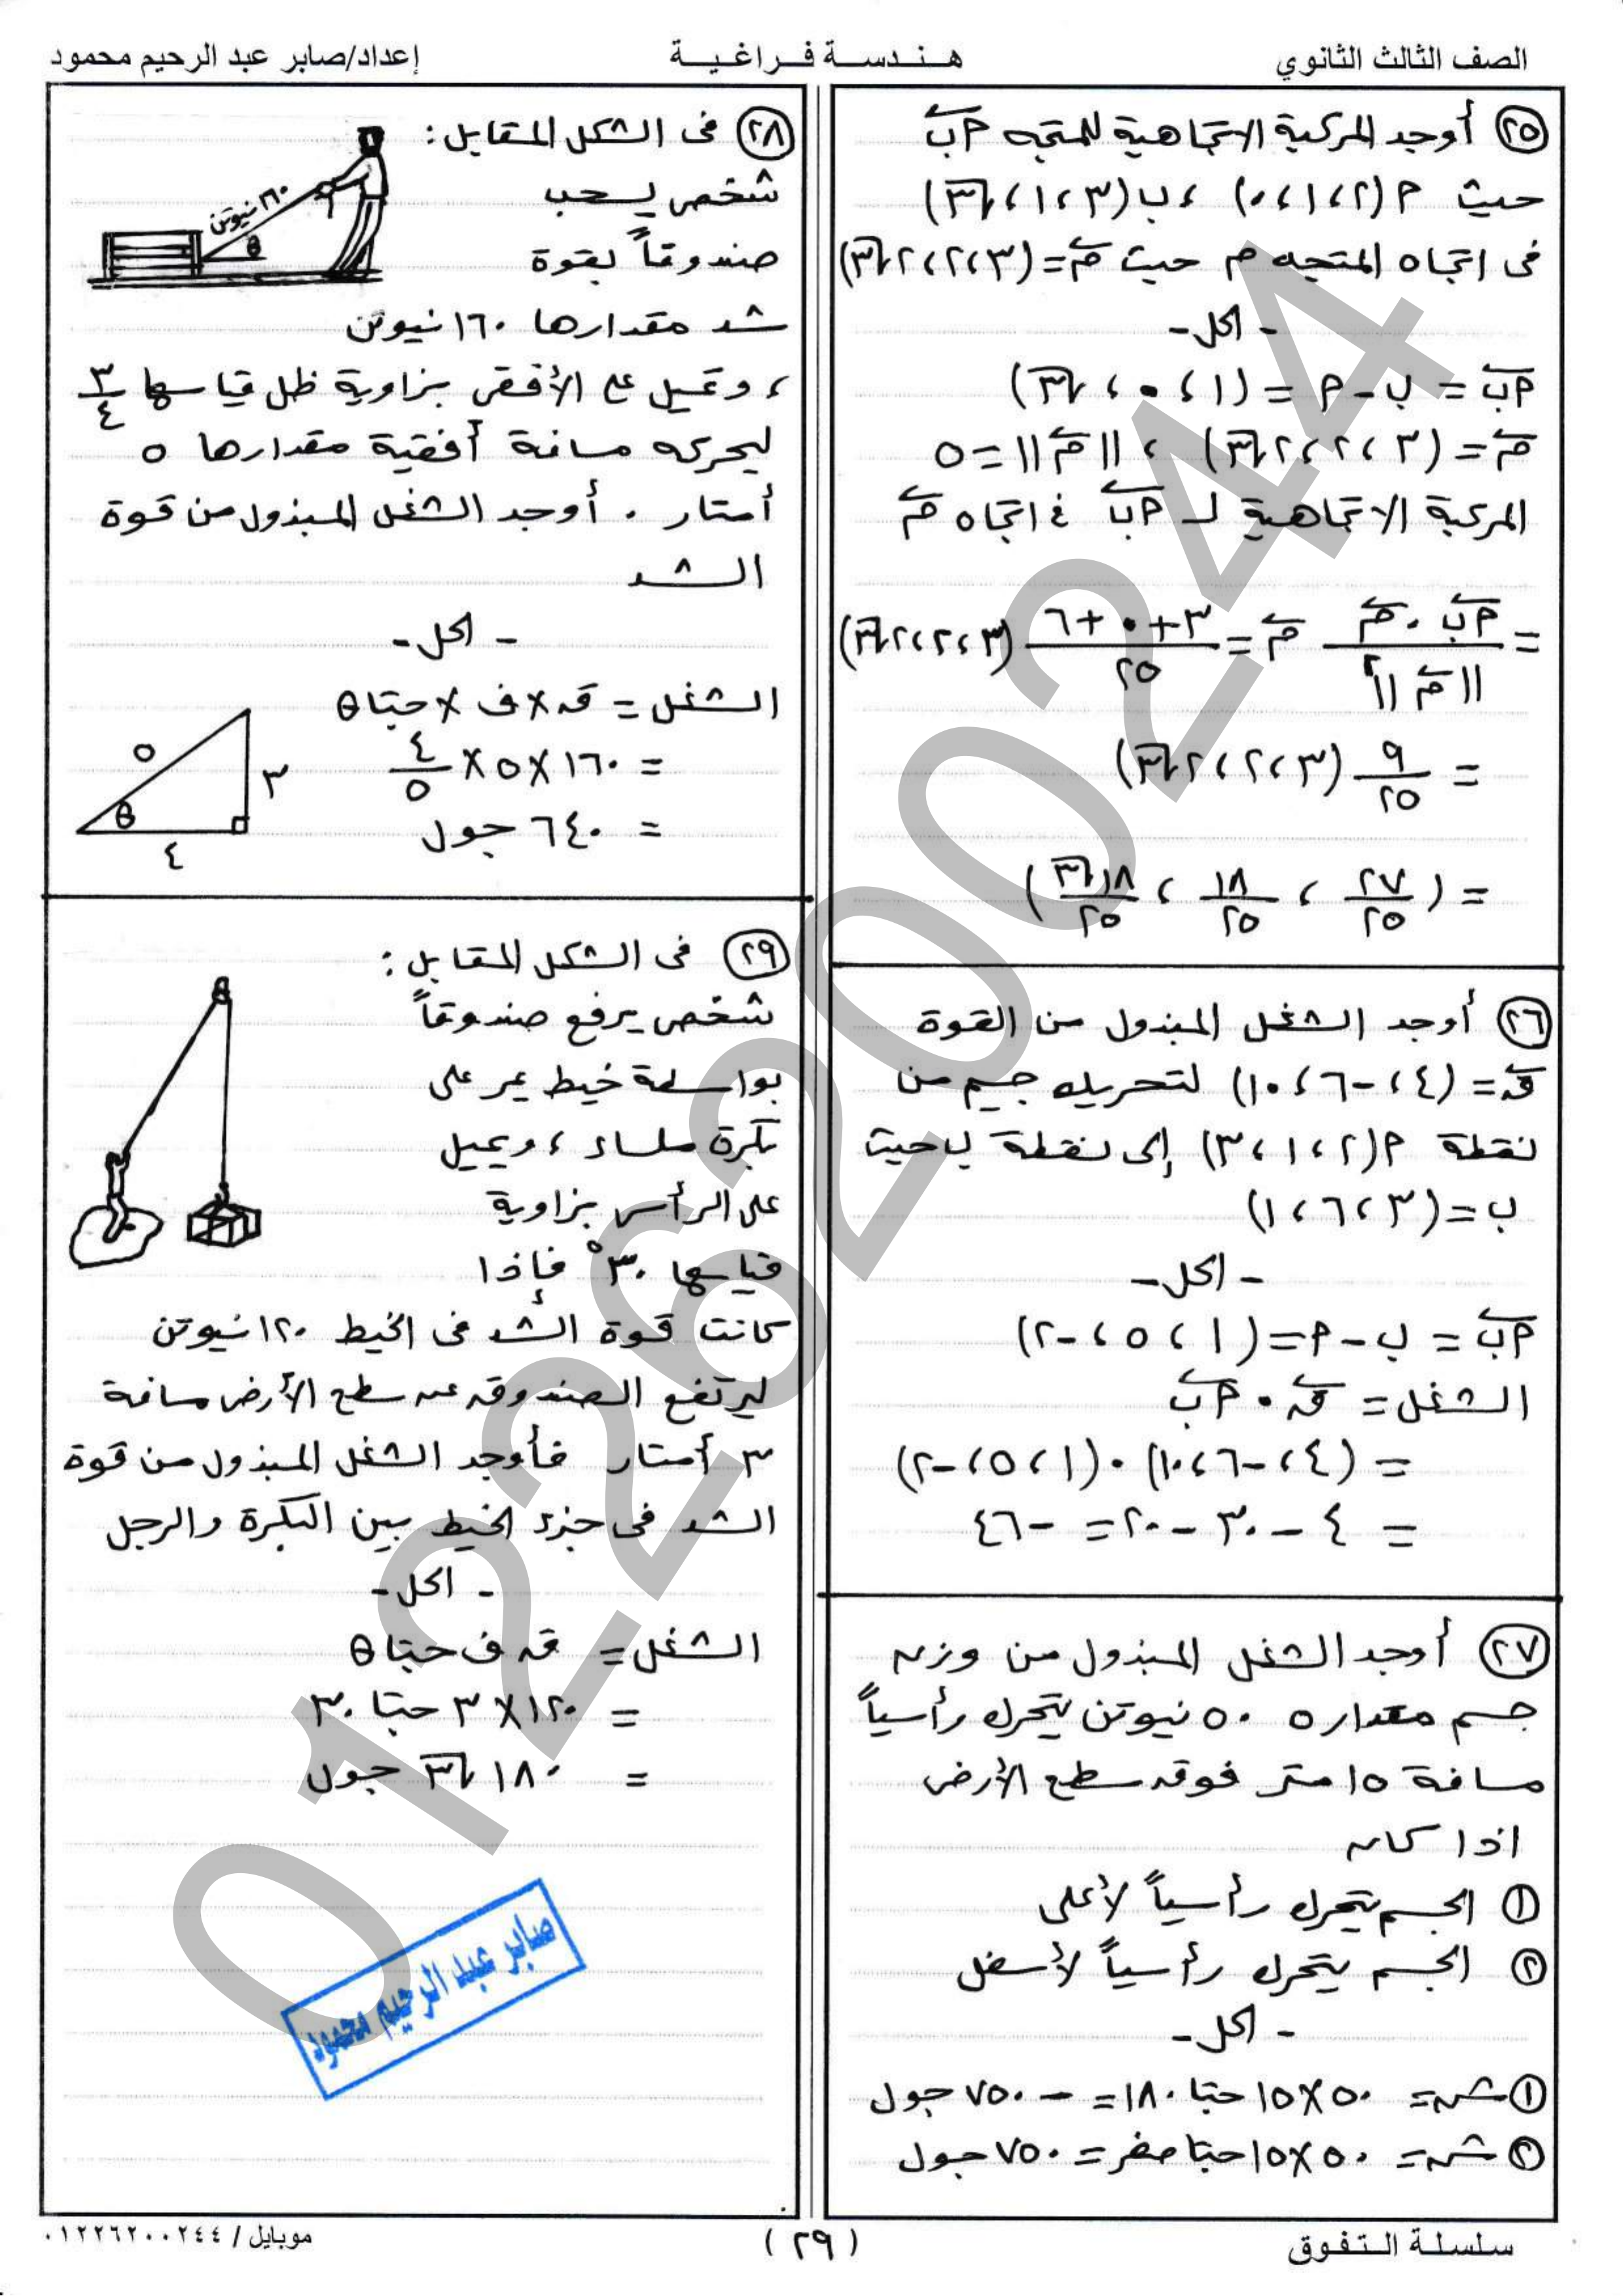 الصف الثالث الثانوي
هندسة فراغية
إعداد/صابر عبد الرحيم محمود
٢٥ أوجد المركبة الاتجاهية للمتجه أب
حيث أ(٢،١،٠)، ب(٣،١،√٣)
فى اتجاه المتجه م حيث م = (٣،٢،٢√٣)
- الحل -
أب = ب - أ = (١،٠،√٣)
م = (٣،٢،٢√٣)، ||م|| = ٥
المركبة الاتجاهية لـ أب في اتجاه م
= (أب · م)/||م||² م = (٣+٠+٦)/٢٥ (٣،٢،٢√٣)
= ٩/٢٥ (٣،٢،٢√٣)
= (٢٧/٢٥، ١٨/٢٥، ١٨√٣/٢٥)
٢٦ أوجد الشغل المبذول من القوة
ق = (٤،-٦،١٠) لتحريك جسم من
نقطة أ(٢،١،٣) إلى نقطة ب حيث
ب = (٣،٦،١)
- الحل -
أب = ب - أ = (١،٥،-٢)
الشغل = ق · أب
= (٤،-٦،١٠) · (١،٥،-٢)
= ٤ - ٣٠ - ٢٠ = -٤٦
٢٧ أوجد الشغل المبذول من وزن
جسم مقداره ٥٠ نيوتن يتحرك رأسياً
مسافة ١٥ متر فوق سطح الأرض
اذا كان
١ الجسم يتحرك رأسياً لأعلى
٢ الجسم يتحرك رأسياً لأسفل
- الحل -
١ ش = ٥٠×١٥ حتا ١٨٠ = -٧٥٠ جول
٢ ش = ٥٠×١٥ حتا صفر = ٧٥٠ جول
٢٨ فى الشكل المقابل:
شخص يسحب
صندوقاً بقوة
شد مقدارها ١٦٠ نيوتن
، وتميل على الأفقى بزاوية ظل قياسها ٣/٤
ليحركه مسافة أفقية مقدارها ٥
أمتار . أوجد الشغل المبذول من قوة
الشد
١٦٠ نيوتن
θ
- الحل -
الشغل = ق × ف × حتا θ
= ١٦٠×٥×٤/٥
= ٦٤٠ جول
٥
٣
θ
٤
٢٩ فى الشكل المقابل:
شخص يرفع صندوقاً
بواسطة خيط يمر على
بكرة ملساء ، ويميل
على الرأسى بزاوية
قياسها ٣٠° فإذا
كانت قوة الشد فى الخيط ١٢٠ نيوتن
ليرتفع الصندوق عن سطح الأرض مسافة
٣ أمتار فأوجد الشغل المبذول من قوة
الشد فى جزء الخيط بين البكرة والرجل
- الحل -
الشغل = ق ف حتا θ
= ١٢٠×٣ حتا ٣٠
= ١٨٠√٣ جول
صابر عبد الرحيم محمود
01226200244
سلسلة التفوق
(٢٩)
موبايل / ٠١٢٢٦٢٠٠٢٤٤